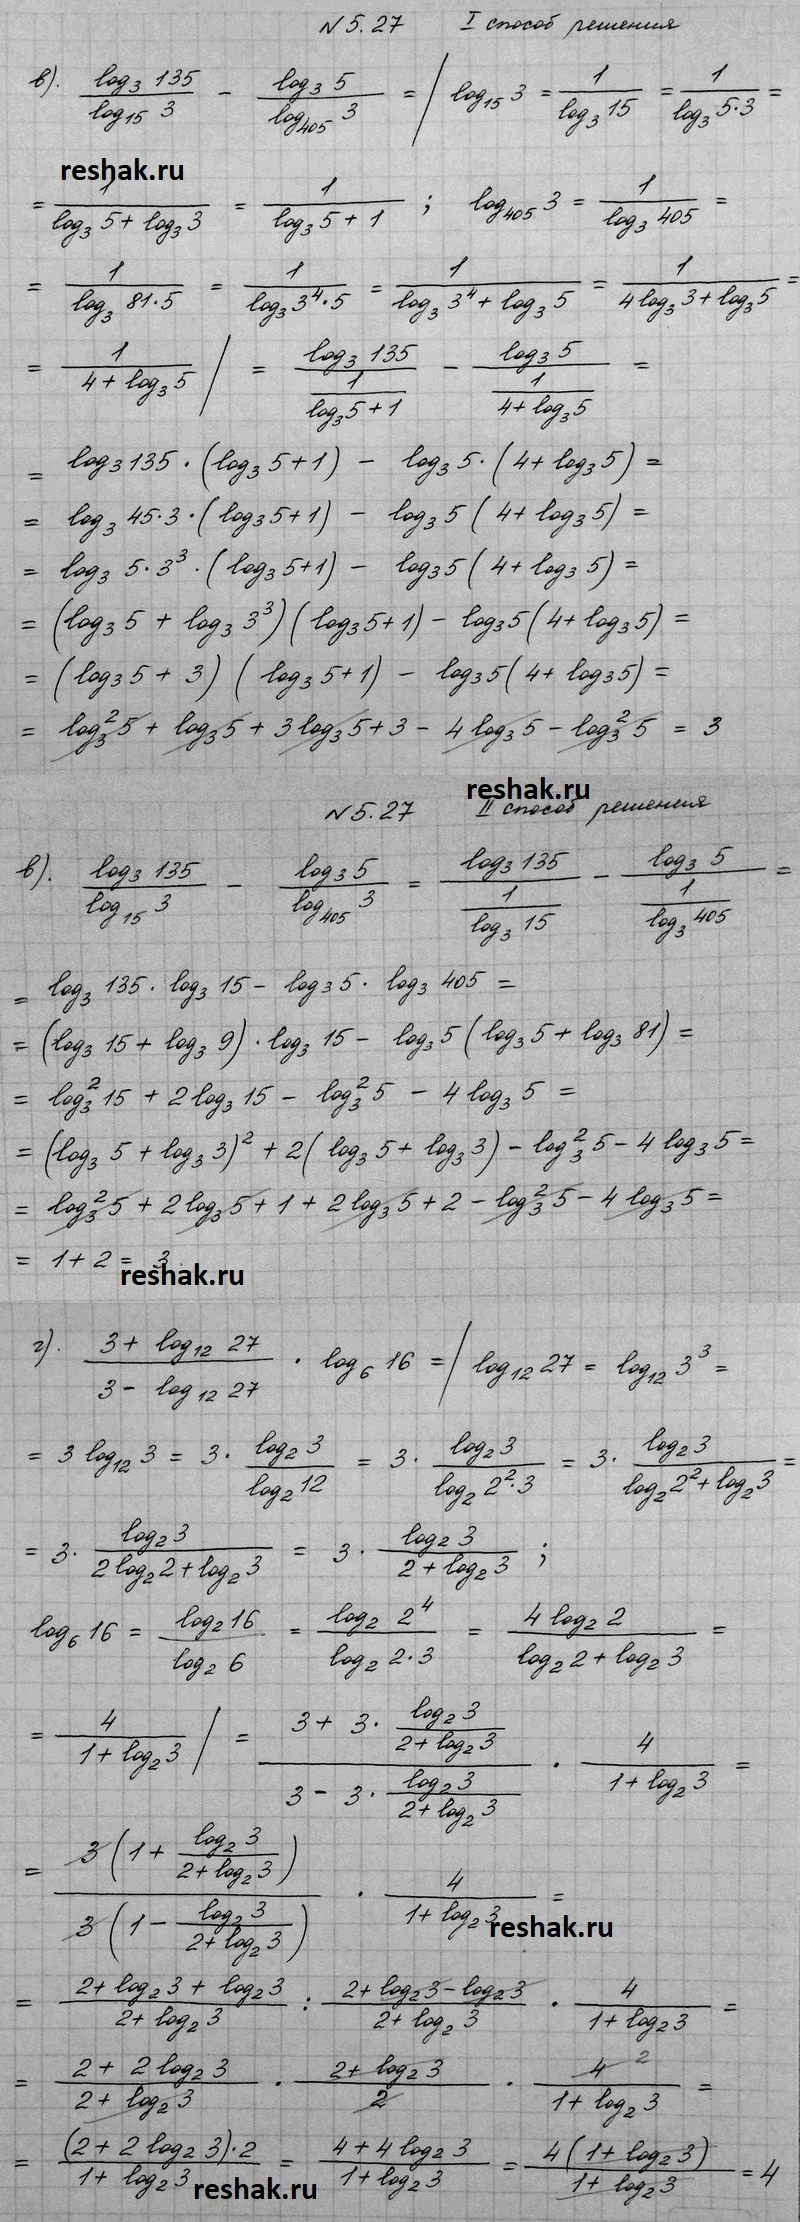 №5.27 I способ решения
в). log₃ 135 / log₁₅ 3 - log₃ 5 / log₄₀₅ 3 = / log₁₅ 3 = 1 / log₃ 15 = 1 / log₃ 5·3 =
reshak.ru
= 1 / (log₃ 5 + log₃ 3) = 1 / (log₃ 5 + 1) ; log₄₀₅ 3 = 1 / log₃ 405 =
= 1 / log₃ 81·5 = 1 / log₃ 3⁴·5 = 1 / (log₃ 3⁴ + log₃ 5) = 1 / (4 log₃ 3 + log₃ 5) =
= 1 / (4 + log₃ 5) / = log₃ 135 / (1 / (log₃ 5 + 1)) - log₃ 5 / (1 / (4 + log₃ 5)) =
= log₃ 135 · (log₃ 5 + 1) - log₃ 5 · (4 + log₃ 5) =
= log₃ 45·3 · (log₃ 5 + 1) - log₃ 5 (4 + log₃ 5) =
= log₃ 5·3³ · (log₃ 5 + 1) - log₃ 5 (4 + log₃ 5) =
= (log₃ 5 + log₃ 3³) (log₃ 5 + 1) - log₃ 5 (4 + log₃ 5) =
= (log₃ 5 + 3) (log₃ 5 + 1) - log₃ 5 (4 + log₃ 5) =
= log₃² 5 + log₃ 5 + 3 log₃ 5 + 3 - 4 log₃ 5 - log₃² 5 = 3
reshak.ru
№5.27 II способ решения
в). log₃ 135 / log₁₅ 3 - log₃ 5 / log₄₀₅ 3 = log₃ 135 / (1 / log₃ 15) - log₃ 5 / (1 / log₃ 405) =
= log₃ 135 · log₃ 15 - log₃ 5 · log₃ 405 =
= (log₃ 15 + log₃ 9) · log₃ 15 - log₃ 5 (log₃ 5 + log₃ 81) =
= log₃² 15 + 2 log₃ 15 - log₃² 5 - 4 log₃ 5 =
= (log₃ 5 + log₃ 3)² + 2 (log₃ 5 + log₃ 3) - log₃² 5 - 4 log₃ 5 =
= log₃² 5 + 2 log₃ 5 + 1 + 2 log₃ 5 + 2 - log₃² 5 - 4 log₃ 5 =
= 1 + 2 = 3.
reshak.ru
г). (3 + log₁₂ 27) / (3 - log₁₂ 27) · log₆ 16 = / log₁₂ 27 = log₁₂ 3³ =
= 3 log₁₂ 3 = 3 · log₂ 3 / log₂ 12 = 3 · log₂ 3 / log₂ 2²·3 = 3 · log₂ 3 / (log₂ 2² + log₂ 3) =
= 3 · log₂ 3 / (2 log₂ 2 + log₂ 3) = 3 · log₂ 3 / (2 + log₂ 3) ;
log₆ 16 = log₂ 16 / log₂ 6 = log₂ 2⁴ / log₂ 2·3 = 4 log₂ 2 / (log₂ 2 + log₂ 3) =
= 4 / (1 + log₂ 3) / = (3 + 3 · log₂ 3 / (2 + log₂ 3)) / (3 - 3 · log₂ 3 / (2 + log₂ 3)) · 4 / (1 + log₂ 3) =
= 3 (1 + log₂ 3 / (2 + log₂ 3)) / 3 (1 - log₂ 3 / (2 + log₂ 3)) · 4 / (1 + log₂ 3) =
reshak.ru
= (2 + log₂ 3 + log₂ 3) / (2 + log₂ 3) : (2 + log₂ 3 - log₂ 3) / (2 + log₂ 3) · 4 / (1 + log₂ 3) =
= (2 + 2 log₂ 3) / (2 + log₂ 3) · (2 + log₂ 3) / 2 · 4 2 / (1 + log₂ 3) =
= (2 + 2 log₂ 3)·2 / (1 + log₂ 3) = (4 + 4 log₂ 3) / (1 + log₂ 3) = 4 (1 + log₂ 3) / (1 + log₂ 3) = 4
reshak.ru